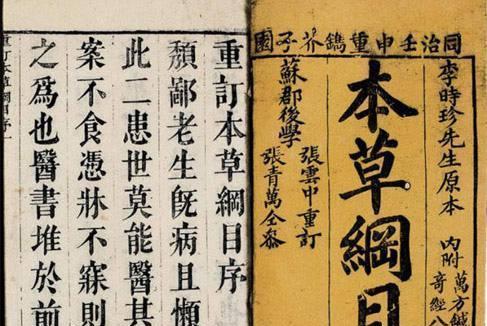 同治壬申重鐫芥子園
李時珍先生原本
內附
萬方鍼
奇經八
本草綱目
蘇郡後學
張雲中重訂
張青萬仝參
重訂本草綱目序
頽鄙老生旣病且懶
此二患世莫能醫其
案不食憑牀不寐則
之爲也醫書堆於前
重訂本草綱目序